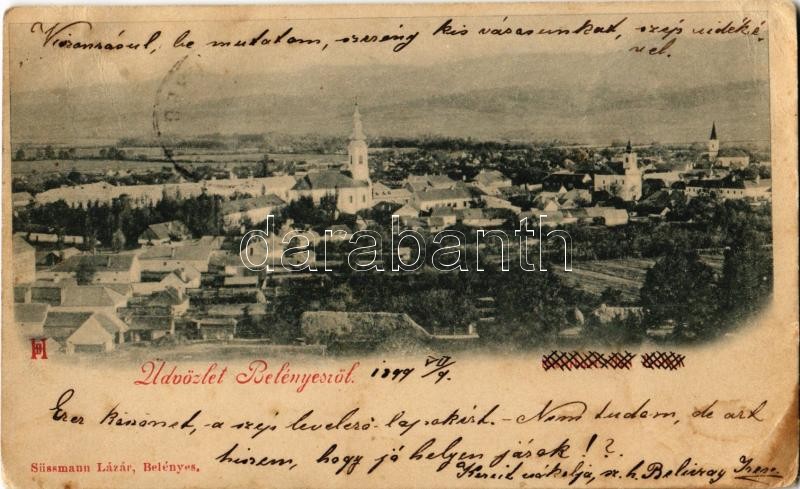 Viszonzásul, be mutatom, szerény kis városunkat, szép vidéké-
vel.
darabanth
Üdvözlet Belényesről. 1899 VII/9.
Ezer köszönet, a szép levelező-lapokért. - Nem tudom, de azt
hiszem, hogy jó helyen járok!?
Kezeit csókolja, sz. h. Beliczay Irén
Süssmann Lázár, Belényes.